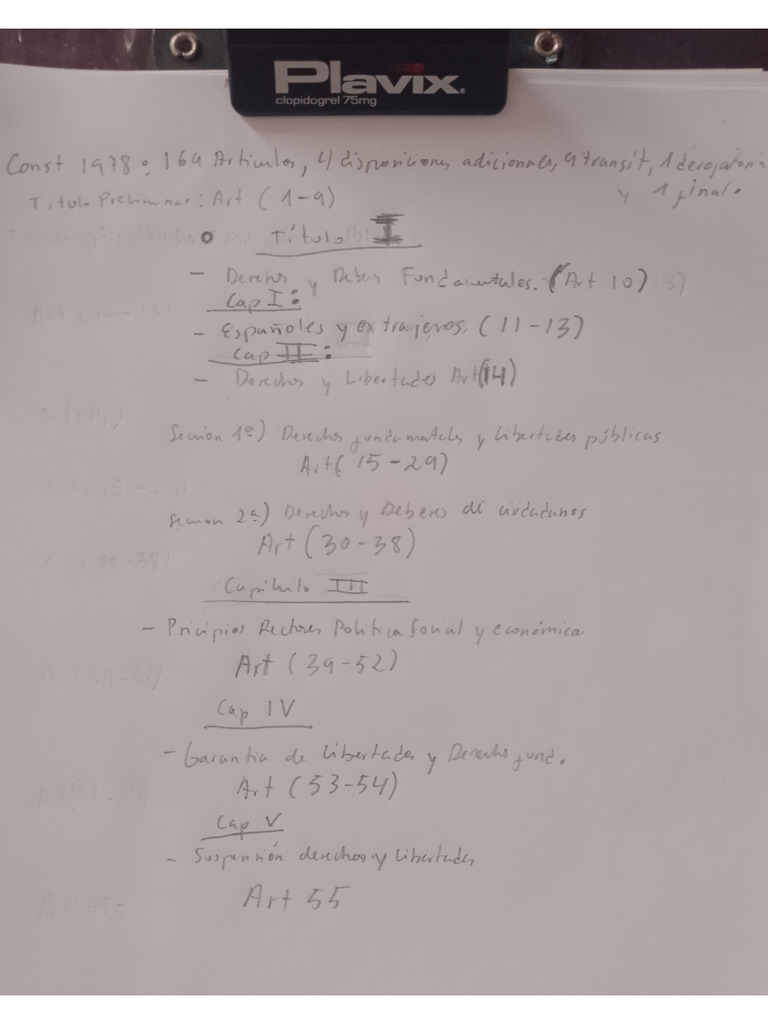 Plavix.
clopidogrel 75mg
Const 1978: 169 Artículos, 4 disposiciones adicionales, 9 transit, 1 derogatoria
y 1 final.
Título Preliminar: Art (1-9)
Título I
- Derechos y Deberes Fundamentales. (Art 10)
Cap I:
- Españoles y extrajeros. (11-13)
Cap II:
- Derechos y Libertades Art(14)
Sección 1ª) Derechos fundamentales y libertades públicas
Art( 15-29)
Sección 2ª) Derechos y Deberes de ciudadanos
Art (30-38)
Capítulo III
- Pricipios Rectores Politica Social y económica
Art (39-52)
Cap IV
- Garantia de libertades y Derechos fund.
Art (53-54)
Cap V
- Suspensión derechos y libertades
Art 55